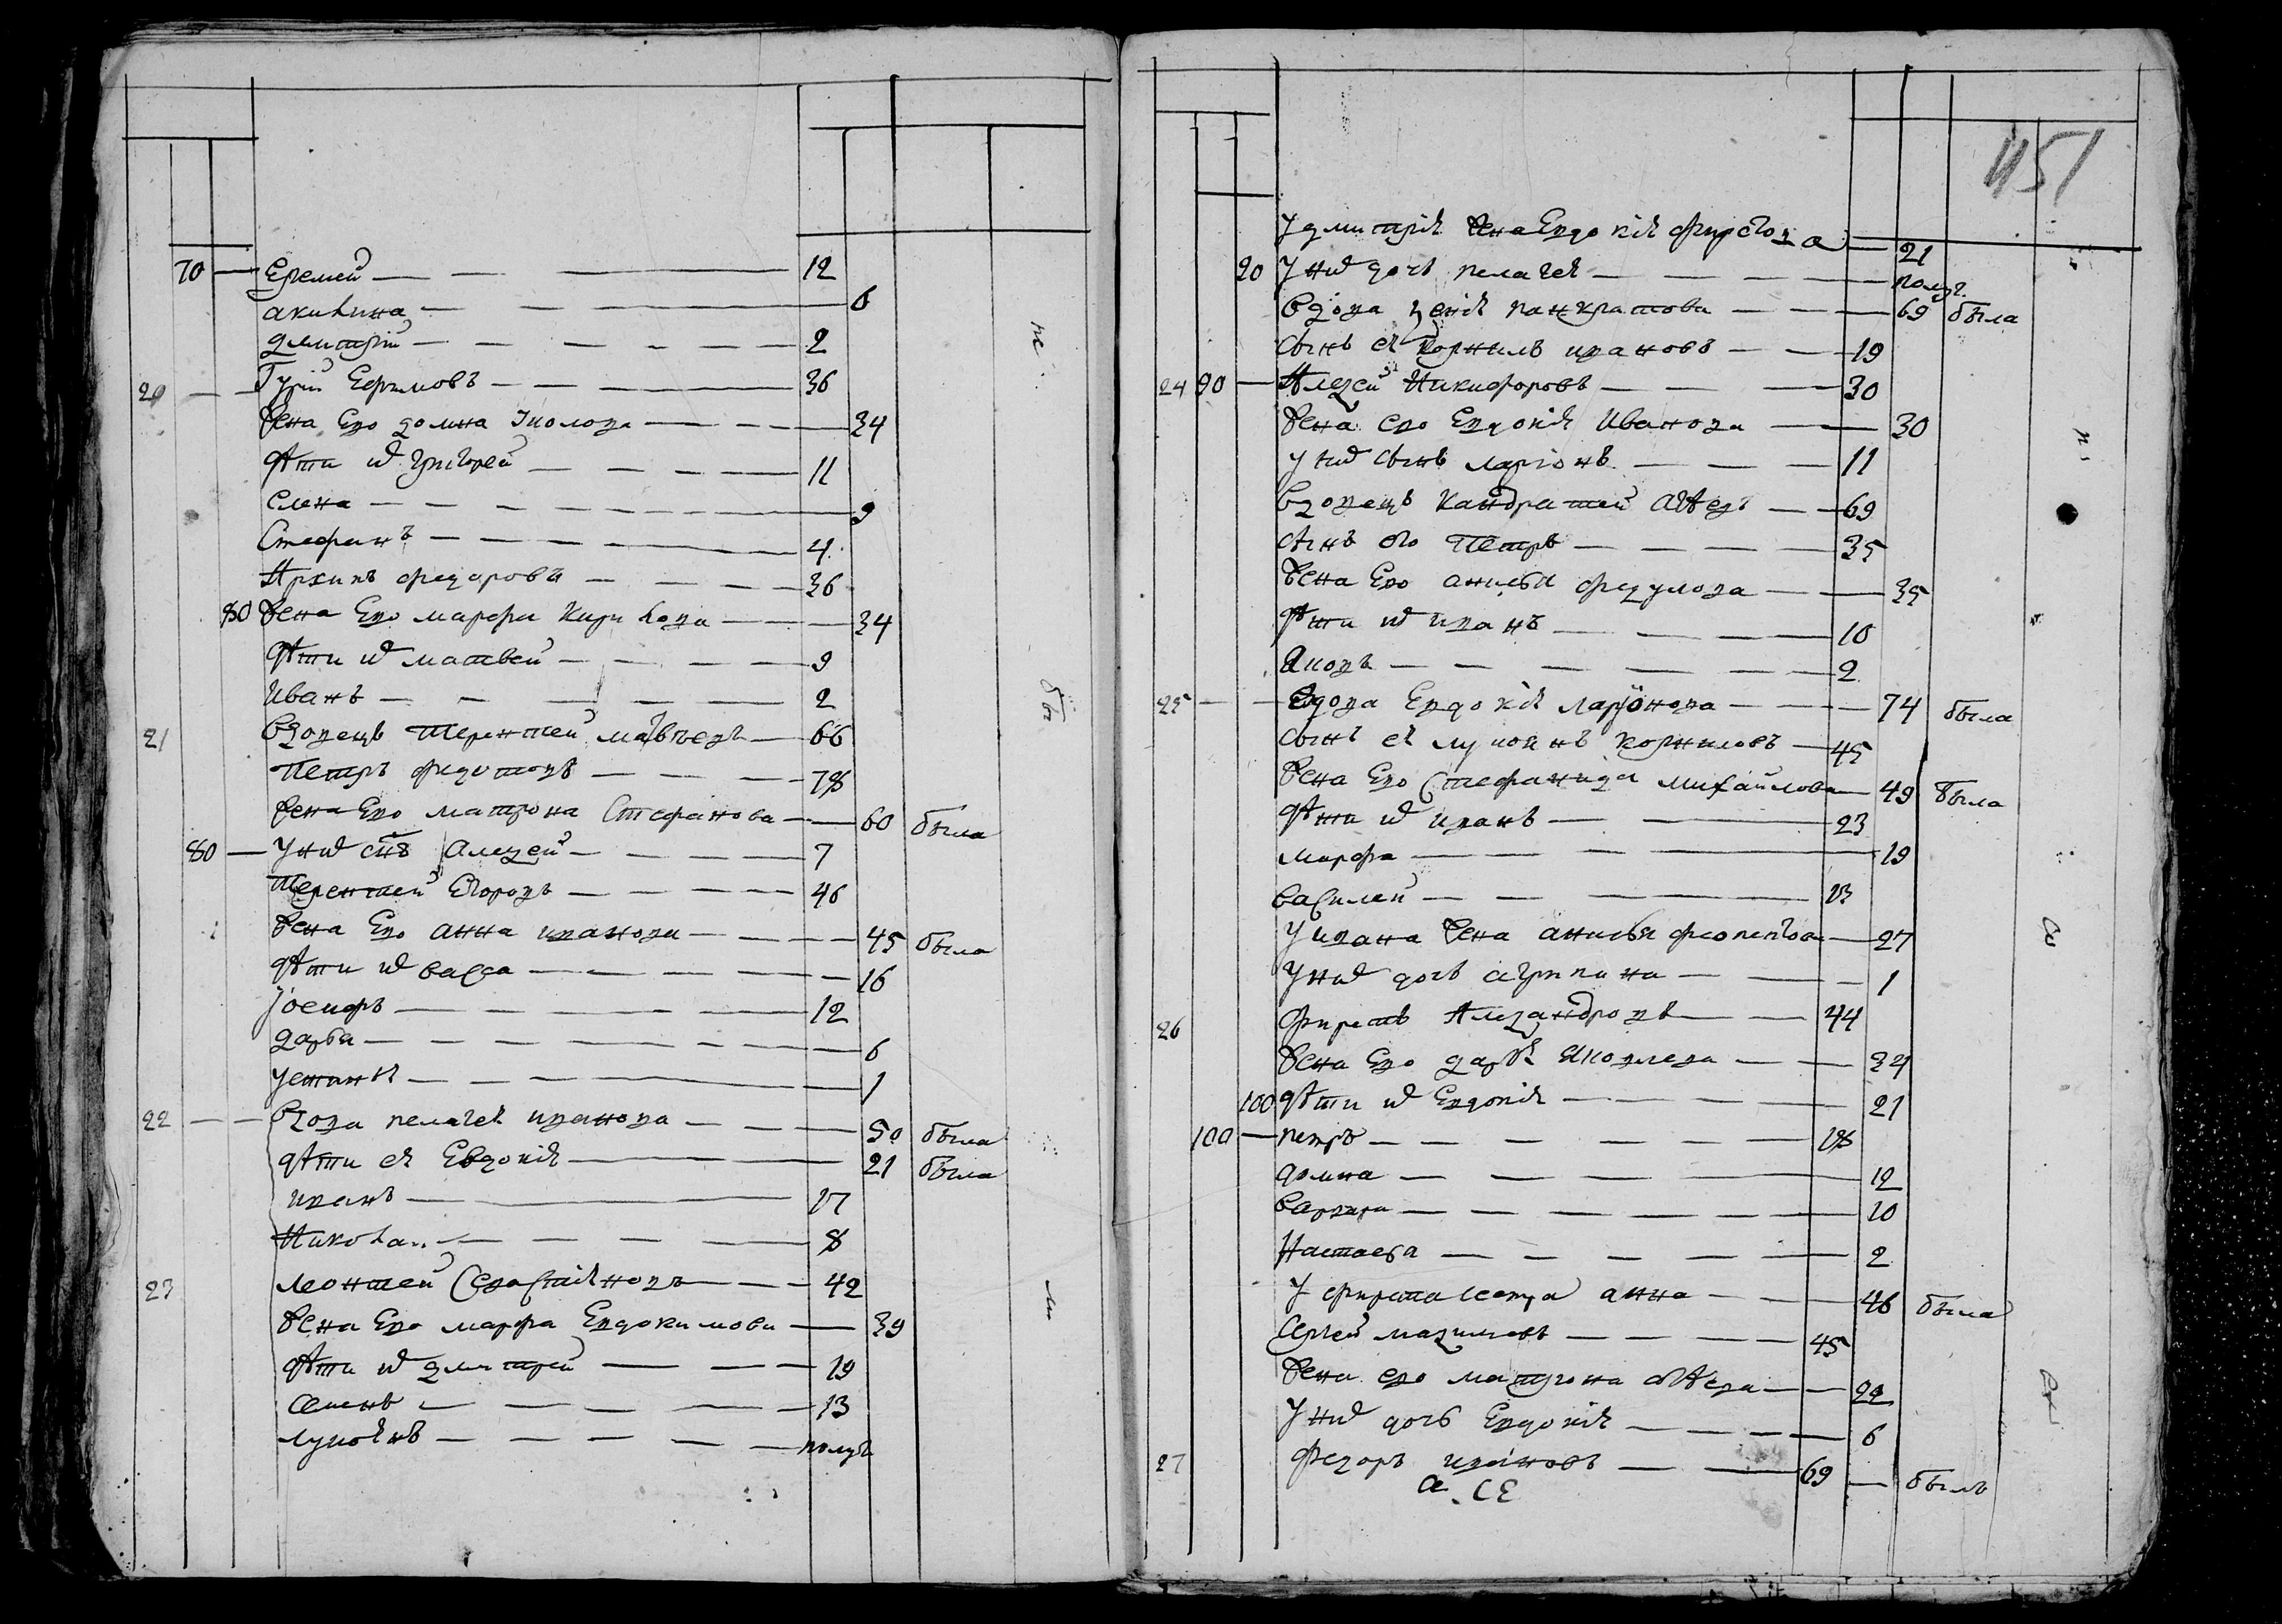 70 — Еремей — 12
акилина — 6
дмитрiй — 2
20 — Гурiй Ефимовъ — 36
Жена Его домна — 34
дѣти ихъ григорей — 11
Елена — 9
Стефанъ — 4
Архипъ федоровъ — 36
80 Жена Его марфа Кирилова — 34
дѣти ихъ матвей — 9
Иванъ — 2
21 вдовецъ терентей матвеевъ — 66
Петръ федотовъ — 78
Жена Его матрона Стефанова — 60 была
80 — У нихъ снъ Алеѯей — 7
Терентей Егоровъ — 46
Жена Его анна иванова — 45 была
дѣти ихъ васса — 16
Iосифъ — 12
дарья — 6
устинья — 1
22 — вдова пелагея иванова — 50 была
дѣти ея Евдокiя — 21 была
иванъ — 17
Никола — 8
23 леонтей Севастiяновъ — 42
Жена Его марфа Евдокимова — 39
дѣти ихъ дмитрей — 19
семенъ — 13
лукоянъ — полуг
1151
У дмитрiя Жена Евдокiя — 21
90 У нихъ дочь пелагея — полуг.
вдова ѯенiя панкратова — 69 была
сынъ ея Корнилъ ивановъ — 19
24 90 — Алеѯей Никифоровъ — 30
Жена его Евдокiя Иванова — 30
у них сынъ ларiонъ — 11
вдовецъ Кандратей — 69
сынъ его Петръ — 35
Жена Его анисья федулова — 35
дѣти ихъ иванъ — 10
Яковъ — 2
25 — вдова Евдокiя ларiонова — 74 была
сынъ ея лукоянъ корниловъ — 45
Жена Его Стефанида михайлова — 49 была
дѣти ихъ иванъ — 23
марфа — 19
василей — 13
У ивана Жена анисья — 27
У нихъ дочь агрипина — 1
26 Фирстъ Алеѯандровъ — 44
Жена Его дарья Яковлева — 34
100 дѣти ихъ Евдокiя — 21
100 — петръ — 18
домна — 12
варвара — 10
Настасья — 2
У фирста сестра анна — 46 была
Сергей маѯимовъ — 45
Жена его матрона — 22
У нихъ дочь Евдокiя — 6
27 Федоръ ивановъ — 69 — былъ